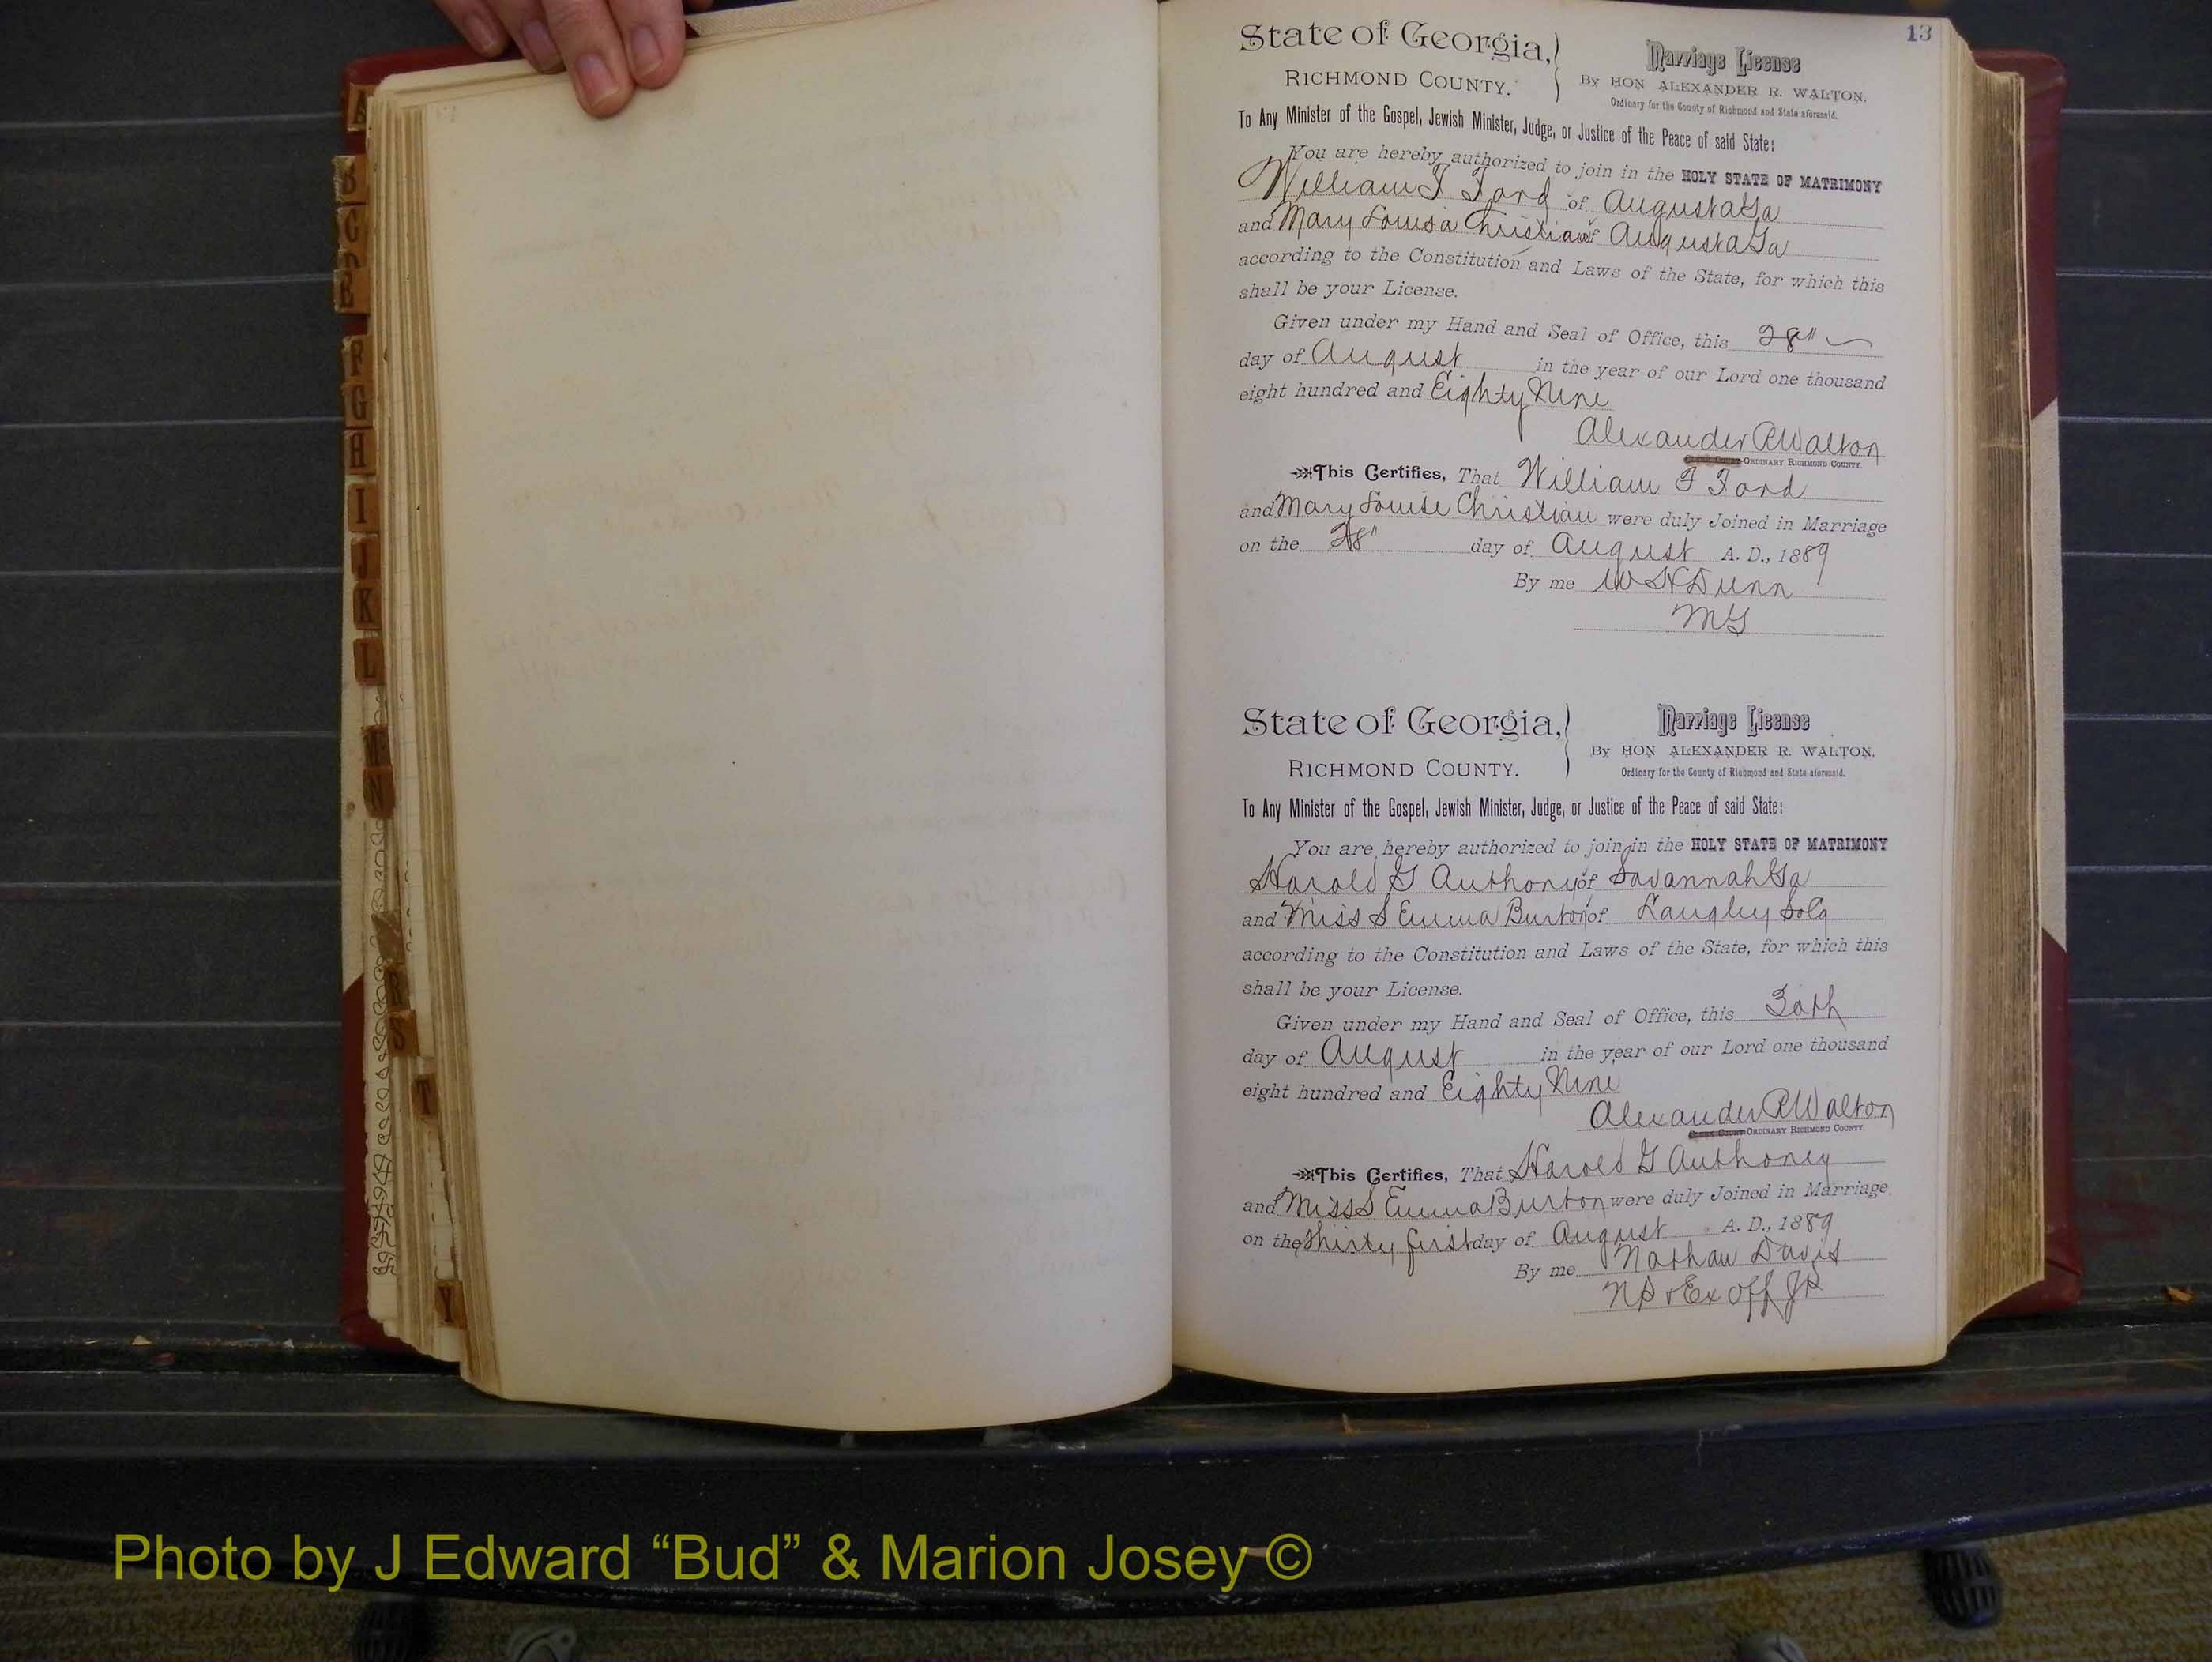 13
State of Georgia,
RICHMOND COUNTY.
Marriage License
By HON ALEXANDER R. WALTON,
Ordinary for the County of Richmond and State aforesaid.
To Any Minister of the Gospel, Jewish Minister, Judge, or Justice of the Peace of said State:
You are hereby authorized to join in the HOLY STATE OF MATRIMONY
William F Ford of Augusta Ga
and Mary Louisa Christian of Augusta Ga
according to the Constitution and Laws of the State, for which this
shall be your License.
Given under my Hand and Seal of Office, this 28"
day of August in the year of our Lord one thousand
eight hundred and Eighty Nine
Alexander R Walton
ORDINARY RICHMOND COUNTY.
This Certifies, That William F Ford
and Mary Louise Christian were duly Joined in Marriage
on the 28" day of August A. D., 1889
By me W H Dunn
MG
State of Georgia,
RICHMOND COUNTY.
Marriage License
By HON ALEXANDER R. WALTON,
Ordinary for the County of Richmond and State aforesaid.
To Any Minister of the Gospel, Jewish Minister, Judge, or Justice of the Peace of said State:
You are hereby authorized to join in the HOLY STATE OF MATRIMONY
Harold G Anthony of Savannah Ga
and Miss S Emma Burton of Langley So Ca
according to the Constitution and Laws of the State, for which this
shall be your License.
Given under my Hand and Seal of Office, this 30th
day of August in the year of our Lord one thousand
eight hundred and Eighty Nine
Alexander R Walton
ORDINARY RICHMOND COUNTY.
This Certifies, That Harold G Anthoney
and Miss S Emma Burton were duly Joined in Marriage
on the Thirty first day of August A. D., 1889
By me Nathan Davis
NP & Ex off JP
B
C
D
E
F
G
H
I
J
K
L
N
S
T
Y
Photo by J Edward “Bud” & Marion Josey ©